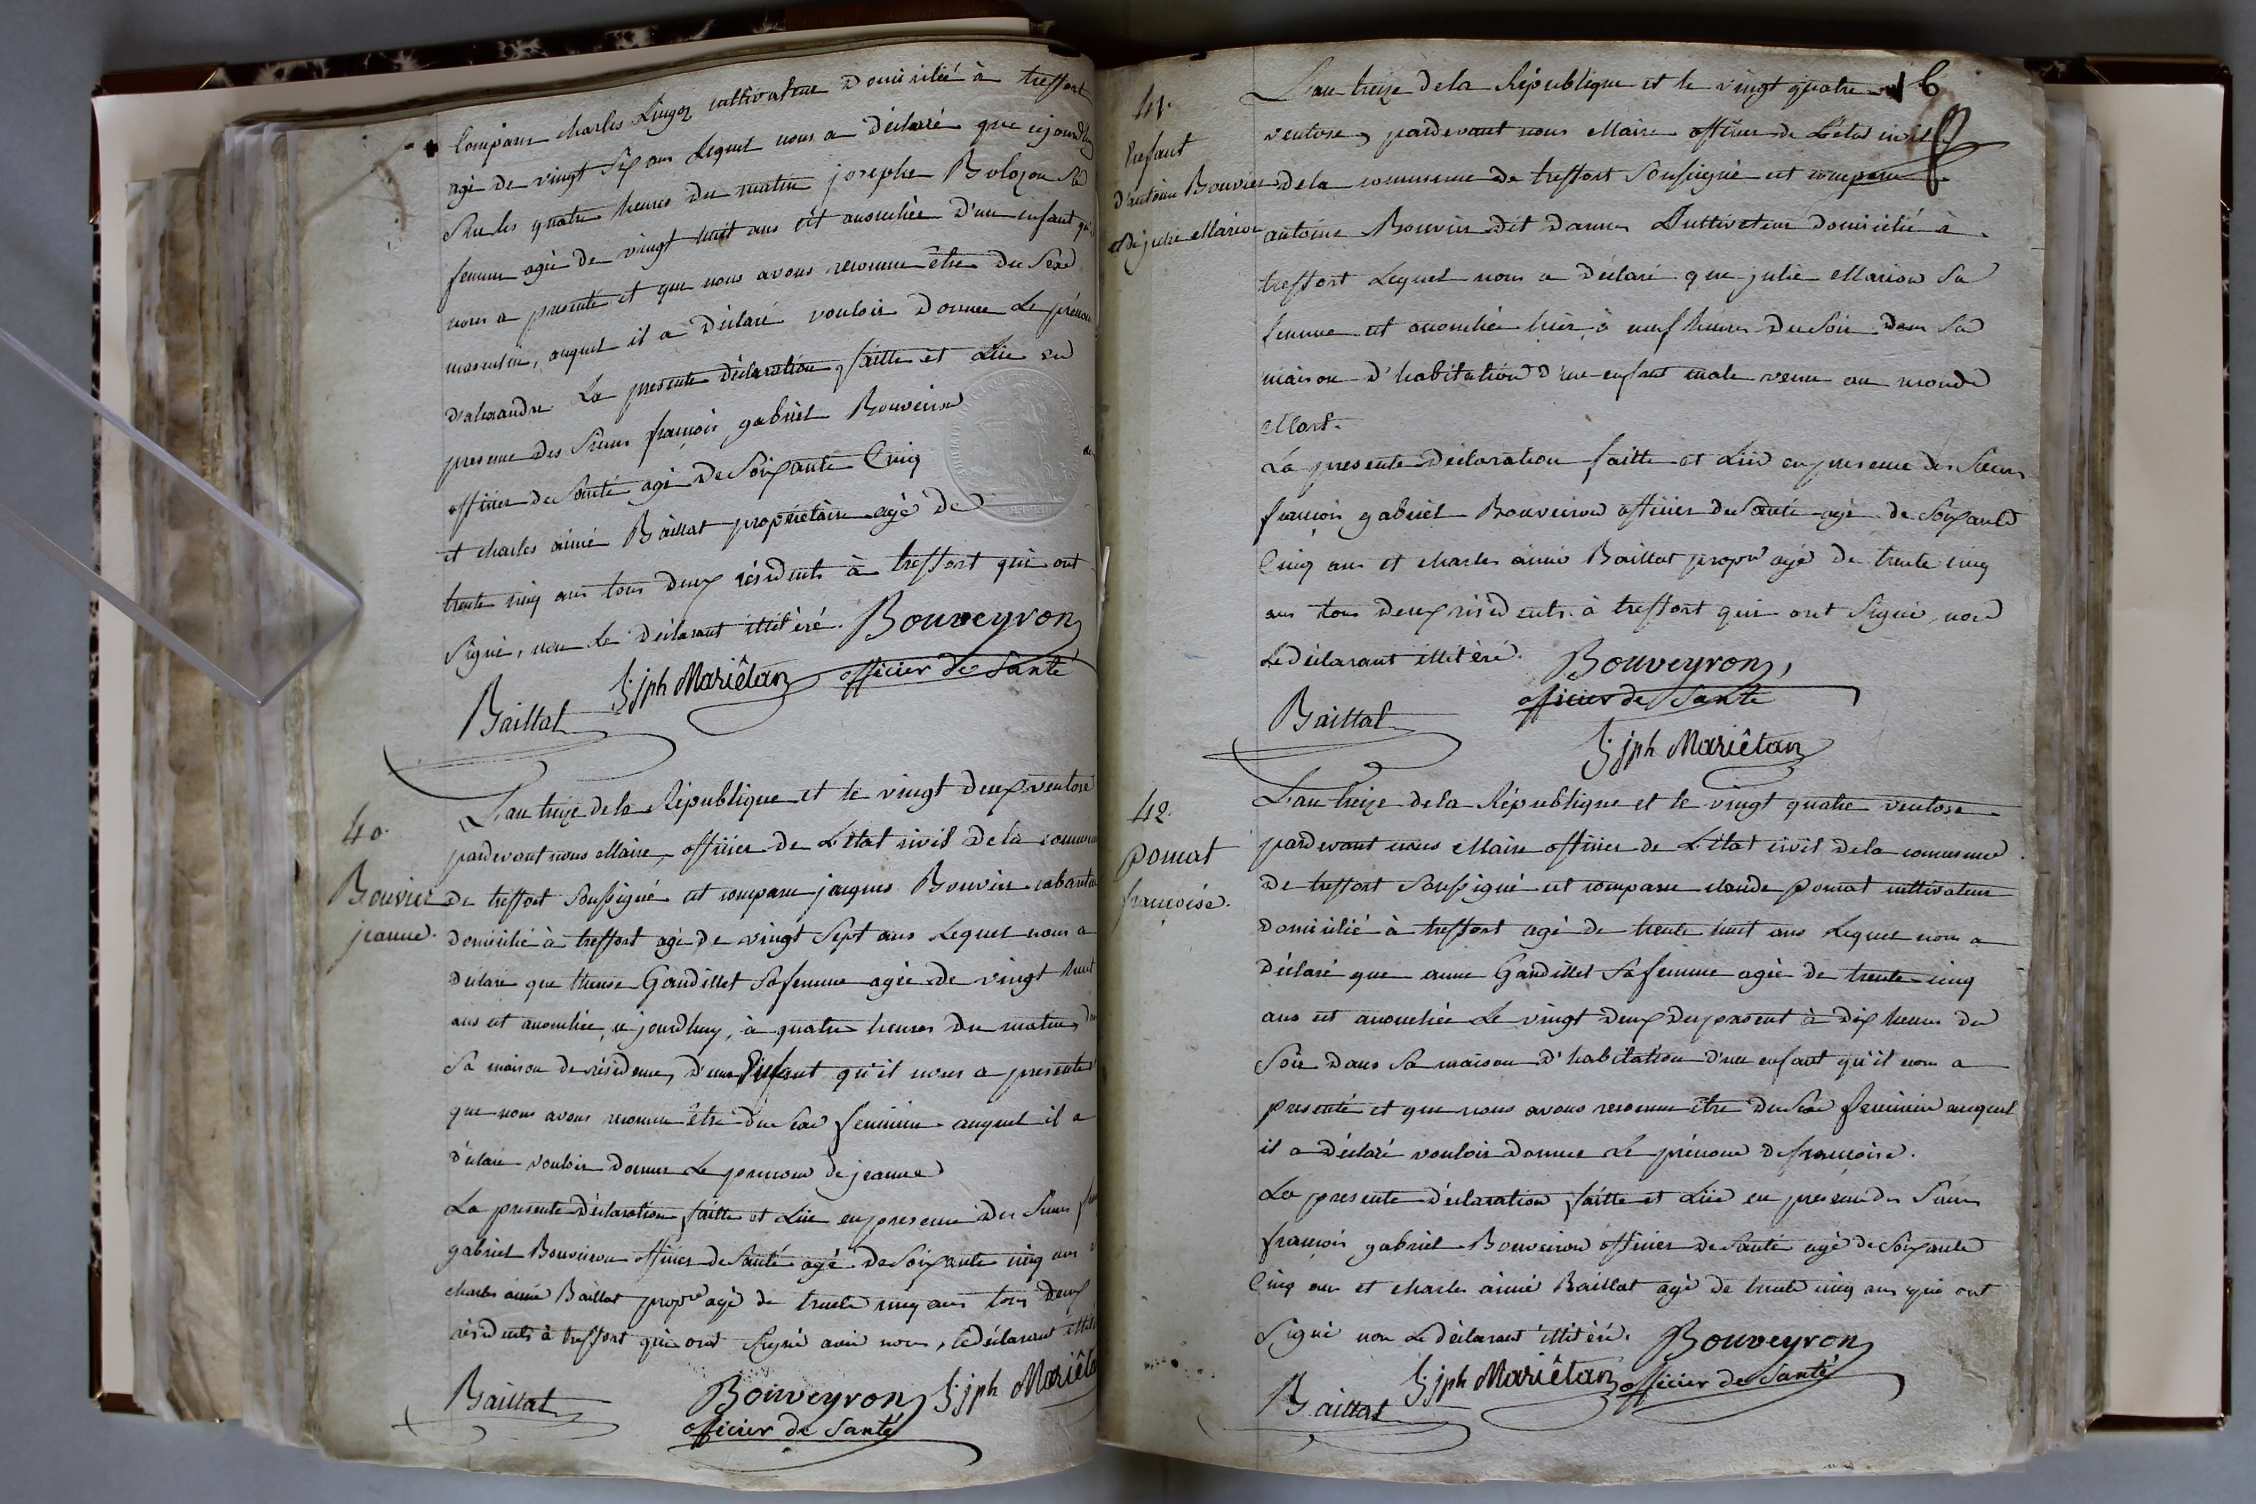 Comparu charles cultivateur Domicilié à treffort
agé de vingt six ans Lequel nous a déclaré que cejourdhuy
Sur les quatre heures du matin josephe Bolozon Sa
femme agée de vingt huit ans est accouchée D'un enfant qu'il
nous a presenté et que nous avons reconnu être du Sexe
masculin, auquel il a Déclaré vouloir Donner Le prénom
D'alexandre La presente déclaration faitte et Lüe en
presence des Sieurs françois gabriel Bouveiron
officier de Santé agé de Soixante Cinq
et charles aimé Baillat propriétaire agé de
trente cinq ans tous deux résidents à treffort qui ont
Signé, non Le Déclarant illitéré. Bouveyron
officier de Santé
jph Mariêtan
Baillat
40.
Bouvier
jeanne.
L'an treize de la République et le vingt deux ventose
pardevant nous Maire, officier de L'état civil De la commune
de treffort Soussigné est comparu jacques Bouvier cabaretier
domicilié à treffort agé de vingt Sept ans Lequel nous a
déclaré que therese Gaudillet Sa femme agée de vingt huit
ans est accouchée, ce jourdhuy, à quatre heures du matin, dans
Sa maison de résidence, d'un Enfant qu'il nous a presenté
que nous avons reconnu être du Sexe feminin auquel il a
déclaré vouloir donner Le prenom de jeanne
La presente Déclaration faitte et Lüe en presence des Sieurs
gabriel Bouveiron officier de Santé agé de Soixante cinq ans
charles aimé Baillat propre agé de trente cinq ans tous deux
résidents à treffort qui ont Signé avec nous, le déclarant
Baillat
Bouveyron
officier de Santé
jph Mariêtan
16
41.
Enfant
d'antoine Bouvier
et de julie Marion
L'an treize de la République et le vingt quatre
ventose, pardevant nous Maire officier de L'état civil
de la commune de treffort Soussigné est comparu
antoine Bouvier dit Cultivateur domicilié à
treffort Lequel nous a déclaré que julie Marion Sa
femme est accouchée hier à neuf heures du Soir dans Sa
maison d'habitation d'un enfant male venu au monde
Mort.
La presente déclaration faitte et Lüe en presence des Sieurs
françois gabriel Bouveiron officier de Santé agé de Soixante
Cinq ans et charles aimé Baillat propre agé de trente cinq
ans tous deux résidents à treffort qui ont Signé, non
Le déclarant illitéré.
Bouveyron,
officier de Santé
Baillat
jph Mariêtan
42.
Pomat
françoise.
L'an treize de la République et le vingt quatre ventose
pardevant nous Maire officier de L'état civil de la commune
De treffort Soussigné est comparu claude Pomat cultivateur
domicilié à treffort agé de trente huit ans Lequel nous a
déclaré que anne Gaudillet Sa femme agée de trente cinq
ans est accouchée Le vingt deux du present à dix heures du
Soir dans Sa maison d'habitation d'un enfant qu'il nous a
presenté et que nous avons reconnu être du Sexe feminin auquel
il a déclaré vouloir donner Le prénom de françoise.
La presente déclaration faitte et Lüe en presence des Sieurs
françois gabriel Bouveiron officier de Santé agé de Soixante
Cinq ans et charles aimé Baillat agé de trente cinq ans qui ont
Signé non Le déclarant illitéré. Bouveyron
officier de Santé
jph Mariêtan
Baillat